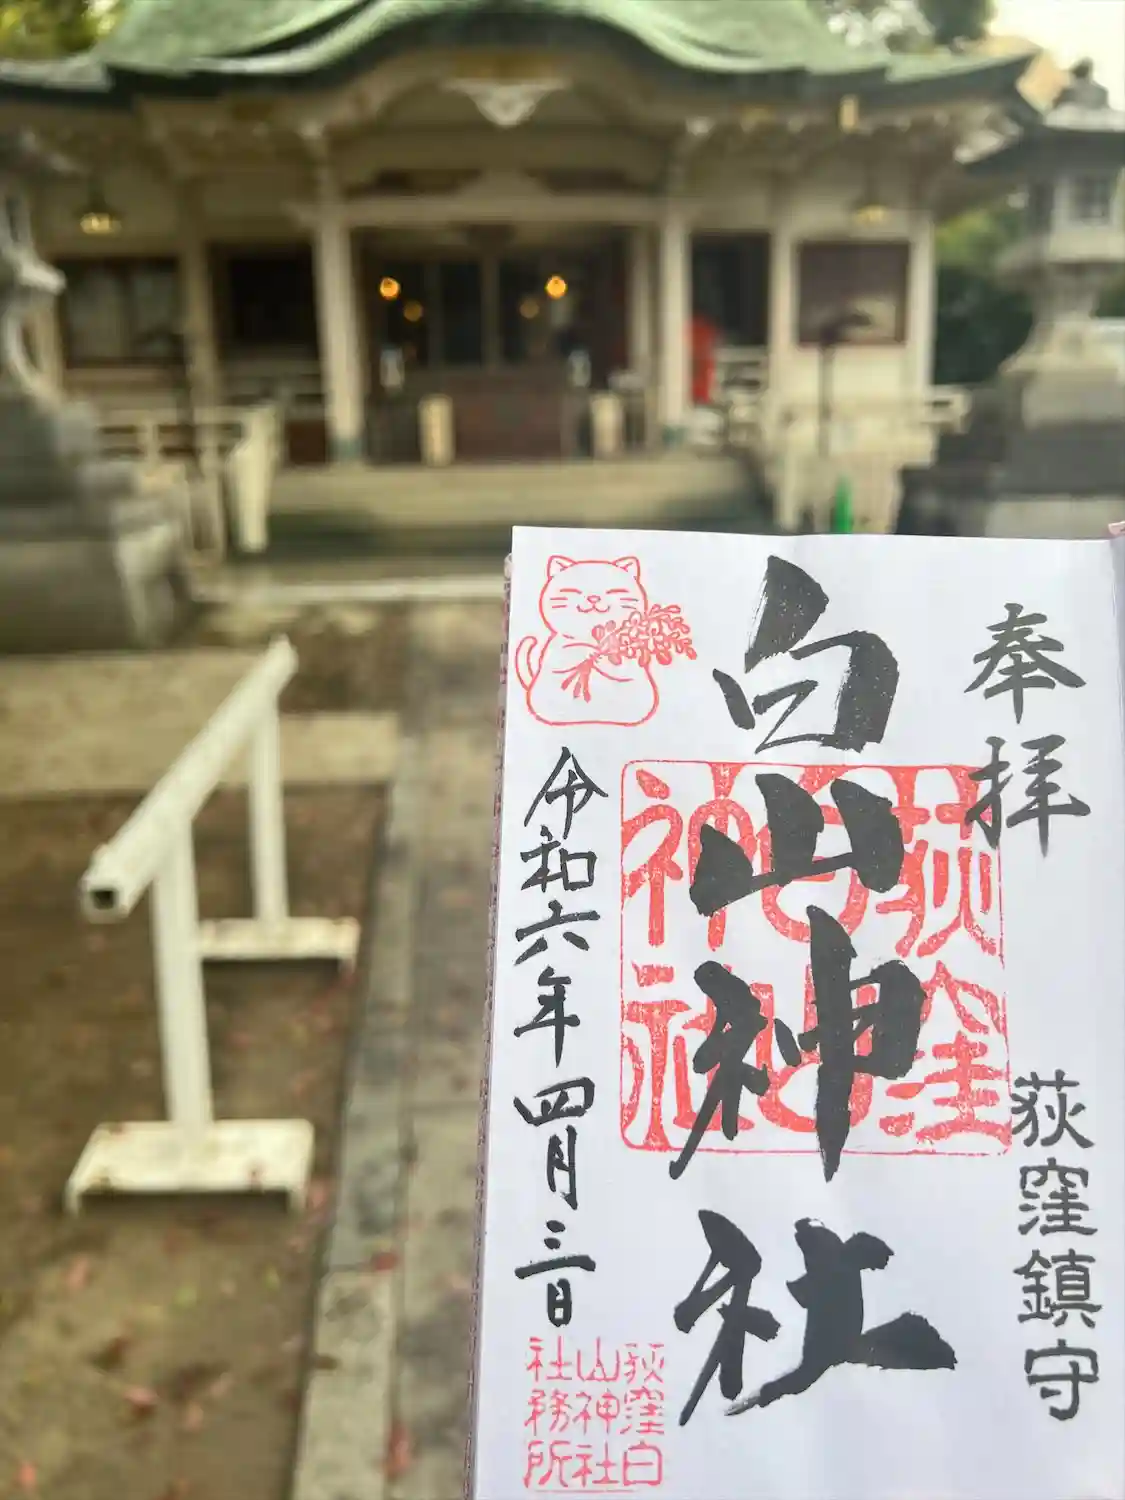 奉拝
荻窪鎮守
白山神社
荻窪
白山
神社
令和六年四月三日
荻窪白
山神社
社務所